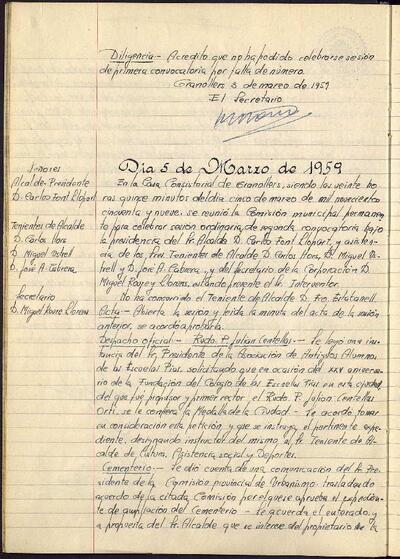 Diligencia.- Acredito que no ha podido celebrarse sesión
de primera convocatoria por falta de número.
Granollers 3 de marzo de 1959
El Secretario
Día 5 de Marzo de 1959
Señores
Alcalde-Presidente
D. Carlos Font Llopart
Tenientes de Alcalde
D. Carlos Hors
D. Miguel Vetrell
D. José A. Cabrera
Secretario
D. Miguel Roure Llorens
En la Casa Consistorial de Granollers, siendo las veinte ho
ras quince minutos del día cinco de marzo de mil novecientos
cincuenta y nueve, se reunió la Comisión municipal permanen
te para celebrar sesión ordinaria de segunda convocatoria bajo
la presidencia del Sr. Alcalde D. Carlos Font Llopart, y asisten-
cia de los Sres. Tenientes de Alcalde D. Carlos Hors, D. Miguel Ve-
trell y D. José A. Cabrera, y del Secretario de la Corporación D.
Miguel Roure y Llorens, estando presente el Sr. Interventor.
No ha concurrido el Teniente de Alcalde D. Fco.
Acta.- Abierta la sesión y leída la minuta del acta de la sesión
anterior, se acordó aprobarla.
Despacho oficial.- Rvdo. P. Julian Centelles.- Se leyó una ins
tancia del Sr. Presidente de la Asociación de Antiguos Alumnos
de las Escuelas Pias, solicitando que en ocasión del XXV aniversa-
rio de la Fundación del Colegio de las Escuelas Pias en esta ciudad,
del que fué propulsor y primer rector el Rvdo. P. Julian Centelles
Orti, se le confiera la Medalla de la Ciudad.- Se acordó tomar
en consideración esta petición, y que se instruya el pertinente expe
diente, designando instructor del mismo, al Sr. Teniente de Al-
calde de Cultura, Asistencia social y Deportes.
Cementerio.- Se dió cuenta de una comunicación del Sr. Pre-
sidente de la Comisión provincial de Urbanismo trasladando
acuerdo de la citada Comisión por el que se aprueba el expedien-
te de ampliación del Cementerio.- Se acuerda el enterado, y
a propuesta del Sr. Alcalde que se interese del propietario de la